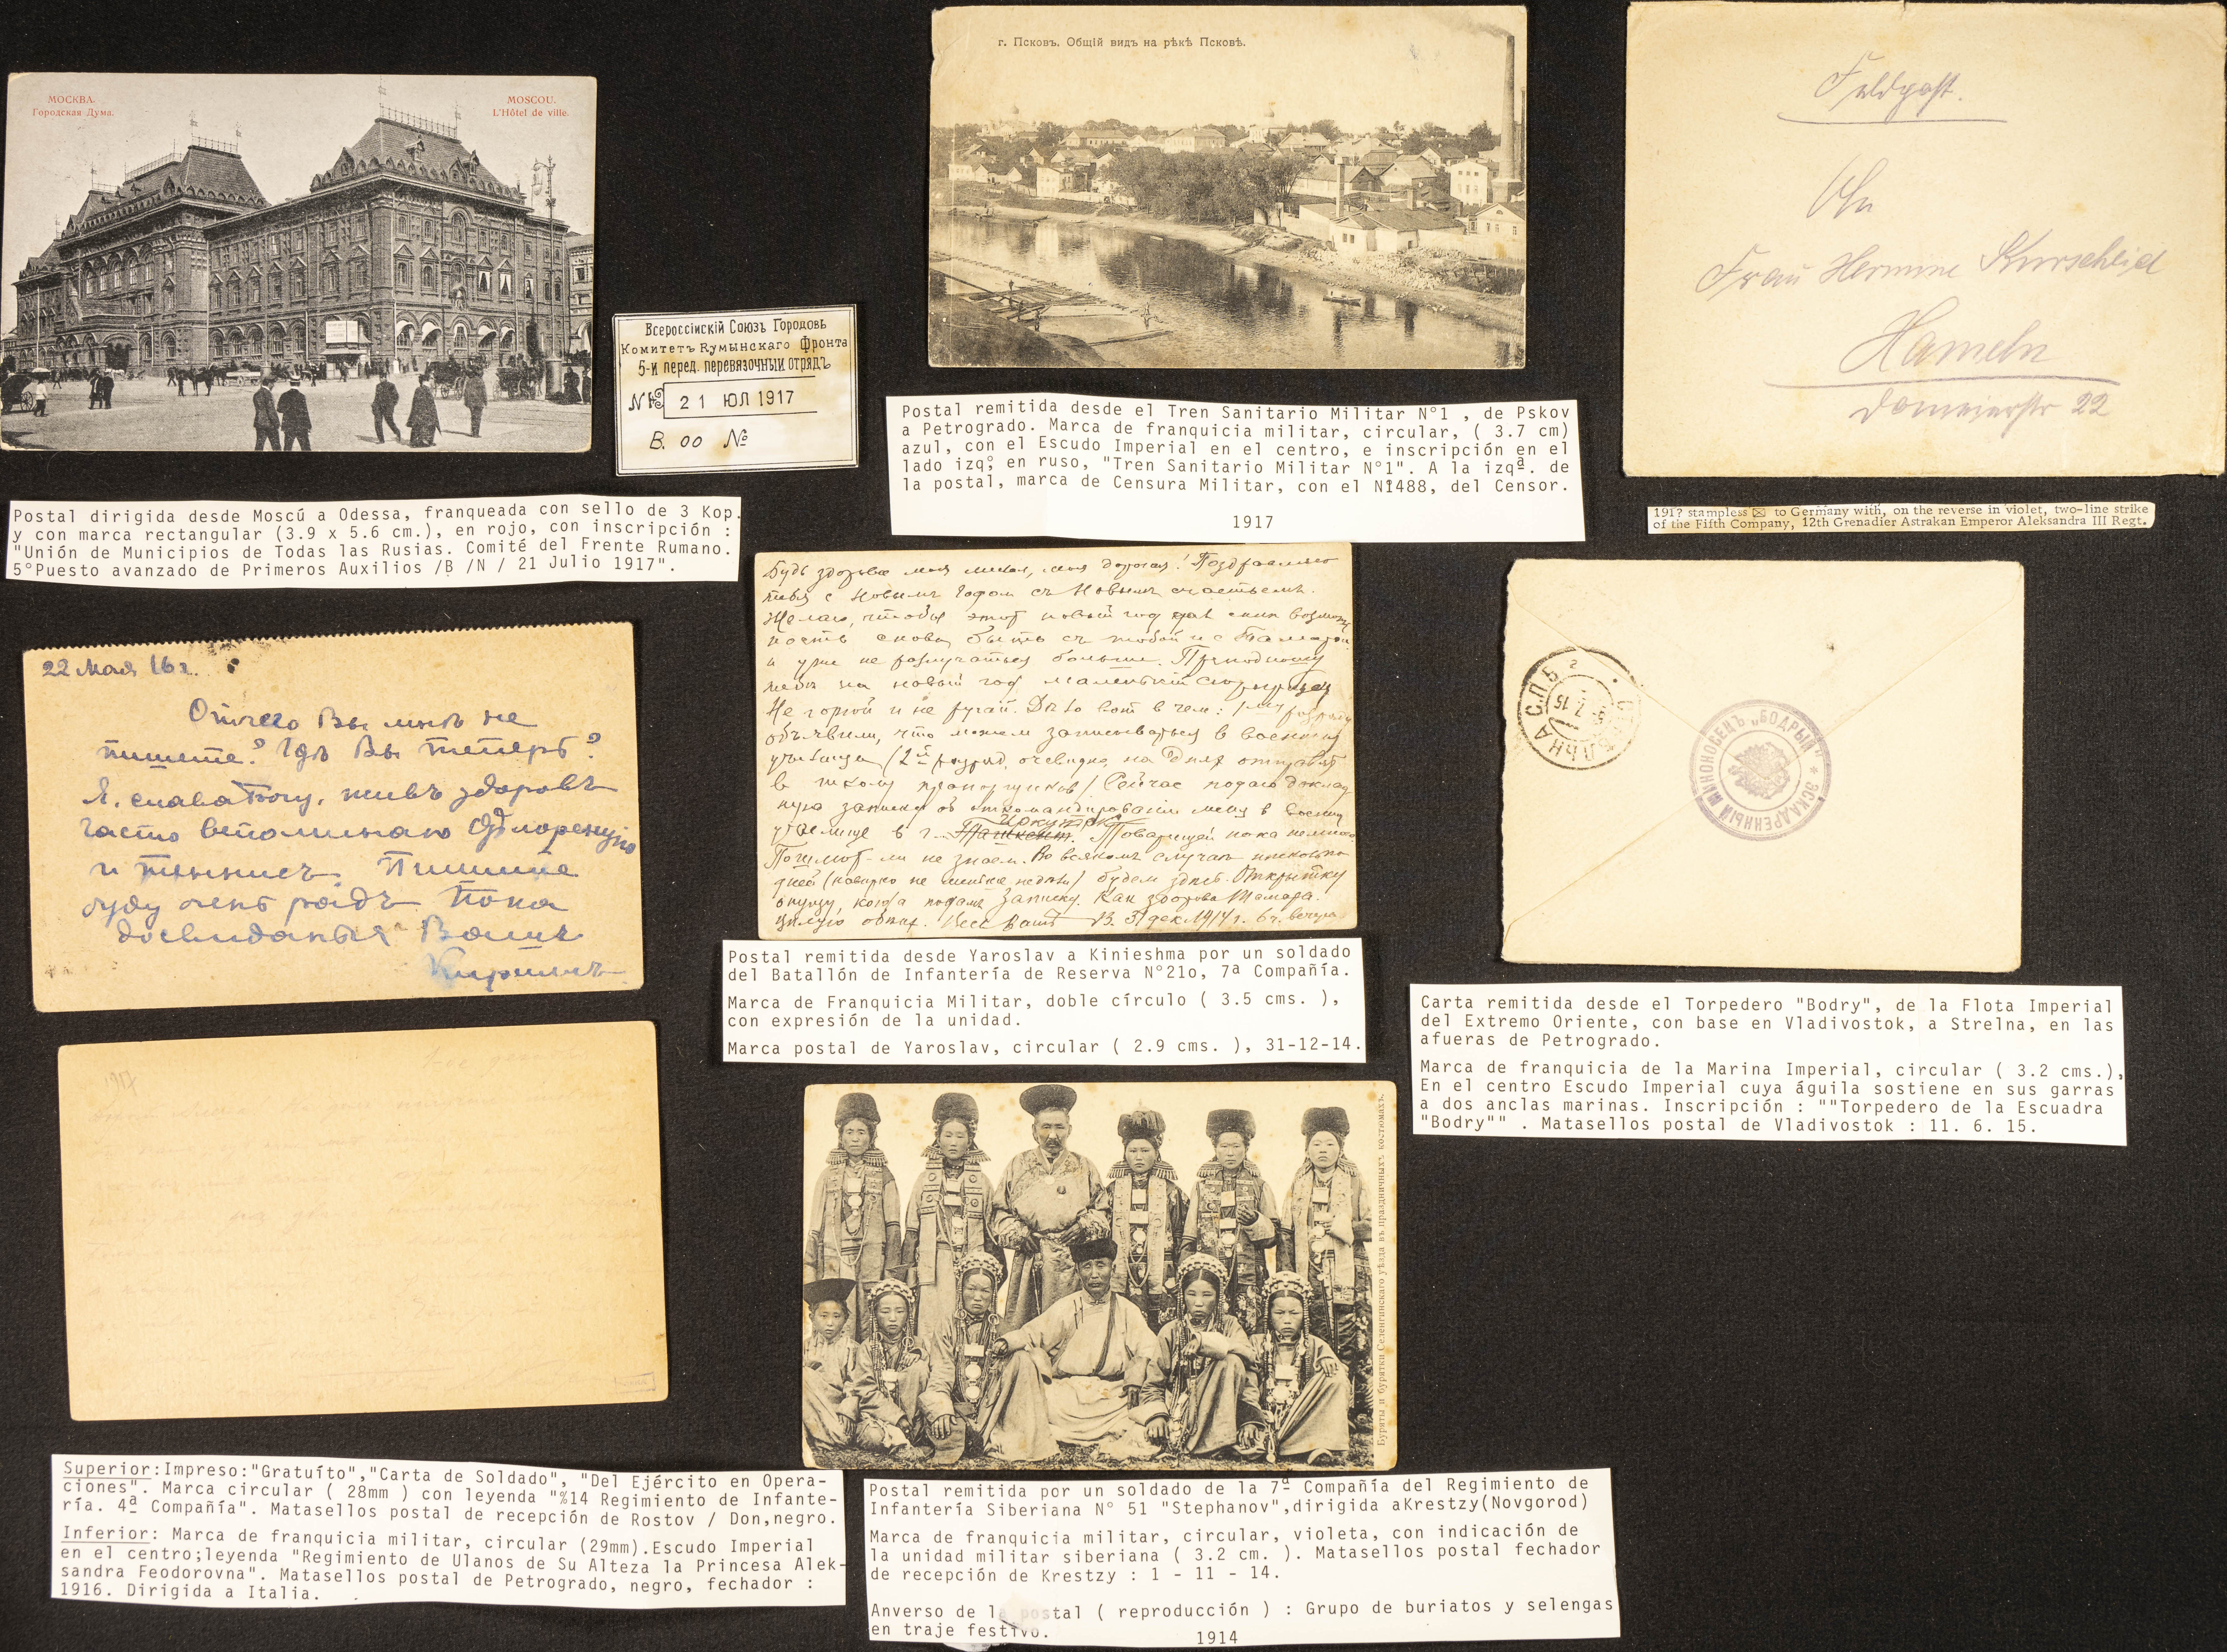 МОСКВА.
Городская Дума.
MOSCOU.
L'Hôtel de ville.
Всероссійскій Союзъ Городовъ
Комитетъ Румынскаго Фронта
5-й перед. перевязочный отрядъ
№ 21 ЮЛ 1917
В. 00 №
Postal dirigida desde Moscú a Odessa, franqueada con sello de 3 Kop.
y con marca rectangular (3.9 x 5.6 cm.), en rojo, con inscripción :
"Unión de Municipios de Todas las Rusias. Comité del Frente Rumano.
5°Puesto avanzado de Primeros Auxilios /B /N / 21 Julio 1917".
г. Псковъ. Общій видъ на рѣкѣ Псковѣ.
Postal remitida desde el Tren Sanitario Militar N°1 , de Pskov
a Petrogrado. Marca de franquicia militar, circular, ( 3.7 cm)
azul, con el Escudo Imperial en el centro, e inscripción en el
lado izqº, en ruso, "Tren Sanitario Militar N°1". A la izqª. de
la postal, marca de Censura Militar, con el N1488, del Censor.
1917
Feldpost.
An
Frau Hermine Kurscheid
Hameln
Domeierstr 22
191? stampless ✉ to Germany with, on the reverse in violet, two-line strike
of the Fifth Company, 12th Grenadier Astrakan Emperor Aleksandra III Regt.
22 Мая 16 г.
Отчего Вы мнѣ не
пишете? Гдѣ Вы теперь?
Я, слава Богу, живъ здоровъ
Часто вспоминаю Флоренцію
и теннисъ. Пишите
буду очень радъ Пока
досвиданья Вашъ
Будь здорова моя милая, моя дорогая! Поздравляю
тебя с Новымъ Годом съ Новымъ счастьемъ.
Желаю, чтобы этот новый год дал нам возмож
ность снова быть съ тобой и с Тамарой
и уже не разлучаться больше. Преподношу
тебѣ на новый год маленькій сюрприз
Не горюй и не ругай. Дѣло вот в чем:
объявили, что можем записываться в военныя
училища (2й разряд, очевидно, на днях отправят
в школу прапорщиков) Сейчас подаю доклад
ную записку об откомандировании меня в военн
училище в г. Иркутск Ташкент. Товарищей пока немного
Пошлют-ли не знаем. Во всяком случаѣ несколько
дней (наверно не меньше недѣли) будем здѣсь. Открытку
опущу, когда подам записку. Как здорова Тамара.
Целую обѣих. Весь Вашъ В. 31 дек. 1914 г. 6 ч. вечера
Postal remitida desde Yaroslav a Kinieshma por un soldado
del Batallón de Infantería de Reserva N°21o, 7ª Compañía.
Marca de Franquicia Militar, doble círculo ( 3.5 cms. ),
con expresión de la unidad.
Marca postal de Yaroslav, circular ( 2.9 cms. ), 31-12-14.
СТРѢЛЬНА С.П.Б.
7 15
ЭСКАДРЕННЫЙ МИНОНОСЕЦЪ „БОДРЫЙ" *
Carta remitida desde el Torpedero "Bodry", de la Flota Imperial
del Extremo Oriente, con base en Vladivostok, a Strelna, en las
afueras de Petrogrado.
Marca de franquicia de la Marina Imperial, circular ( 3.2 cms.),
En el centro Escudo Imperial cuya águila sostiene en sus garras
a dos anclas marinas. Inscripción : ""Torpedero de la Escuadra
"Bodry"" . Matasellos postal de Vladivostok : 11. 6. 15.
1917
Буряты и бурятки Селенгинскаго уѣзда въ праздничныхъ костюмахъ.
Superior:Impreso:"Gratuíto","Carta de Soldado", "Del Ejército en Opera-
ciones". Marca circular ( 28mm ) con leyenda "%14 Regimiento de Infante-
ría. 4ª Compañía". Matasellos postal de recepción de Rostov / Don,negro.
Inferior: Marca de franquicia militar, circular (29mm).Escudo Imperial
en el centro;leyenda "Regimiento de Ulanos de Su Alteza la Princesa Alek-
sandra Feodorovna". Matasellos postal de Petrogrado, negro, fechador :
1916. Dirigida a Italia.
Postal remitida por un soldado de la 7ª Compañía del Regimiento de
Infantería Siberiana N° 51 "Stephanov",dirigida aKrestzy(Novgorod)
Marca de franquicia militar, circular, violeta, con indicación de
la unidad militar siberiana ( 3.2 cm. ). Matasellos postal fechador
de recepción de Krestzy : 1 - 11 - 14.
Anverso de la postal ( reproducción ) : Grupo de buriatos y selengas
en traje festivo.
1914